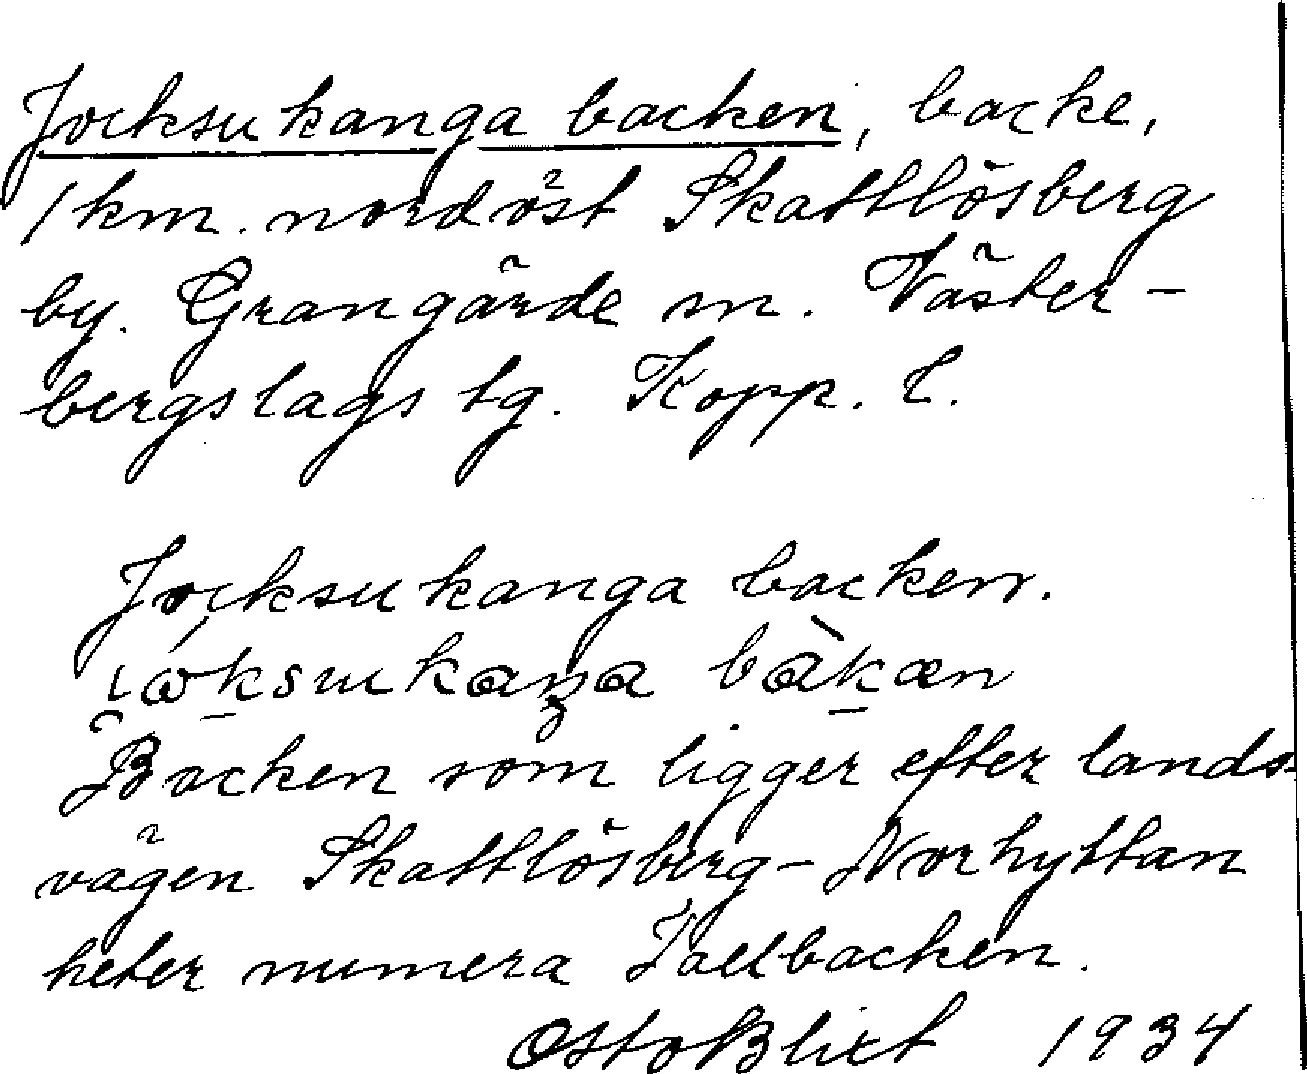 Jocksukanga backen, backe,
1 km. nordöst Skattlösberg
by. Grangärde sn. Väster-
bergslags tg. Kopp. l.
Jocksukanga backen.
Backen som ligger efter lands-
vägen Skattlösberg - Norhyttan
heter numera Tallbacken.
Otto Blixt 1934